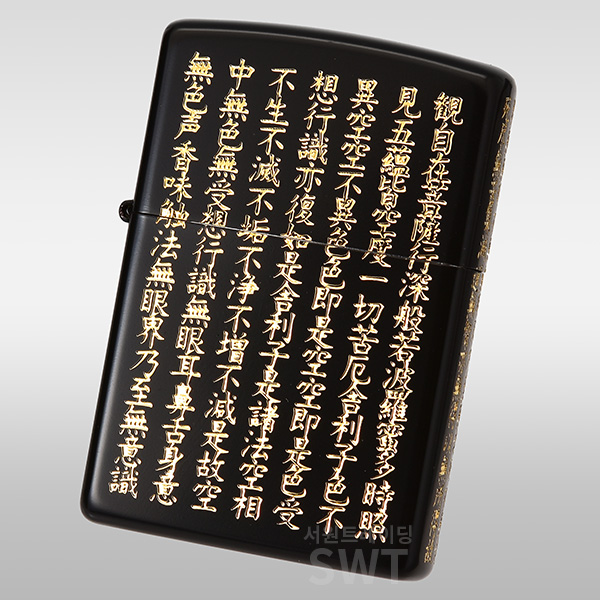 観自在菩薩行深般若波羅蜜多時照
見五蘊皆空度一切苦厄舎利子色不
異空空不異色色即是空空即是色受
想行識亦復如是舎利子是諸法空相
不生不滅不垢不浄不増不減是故空
中無色無受想行識無眼耳鼻舌身意
無色声香味触法無眼界乃至無意識
서원트레이딩
SWT